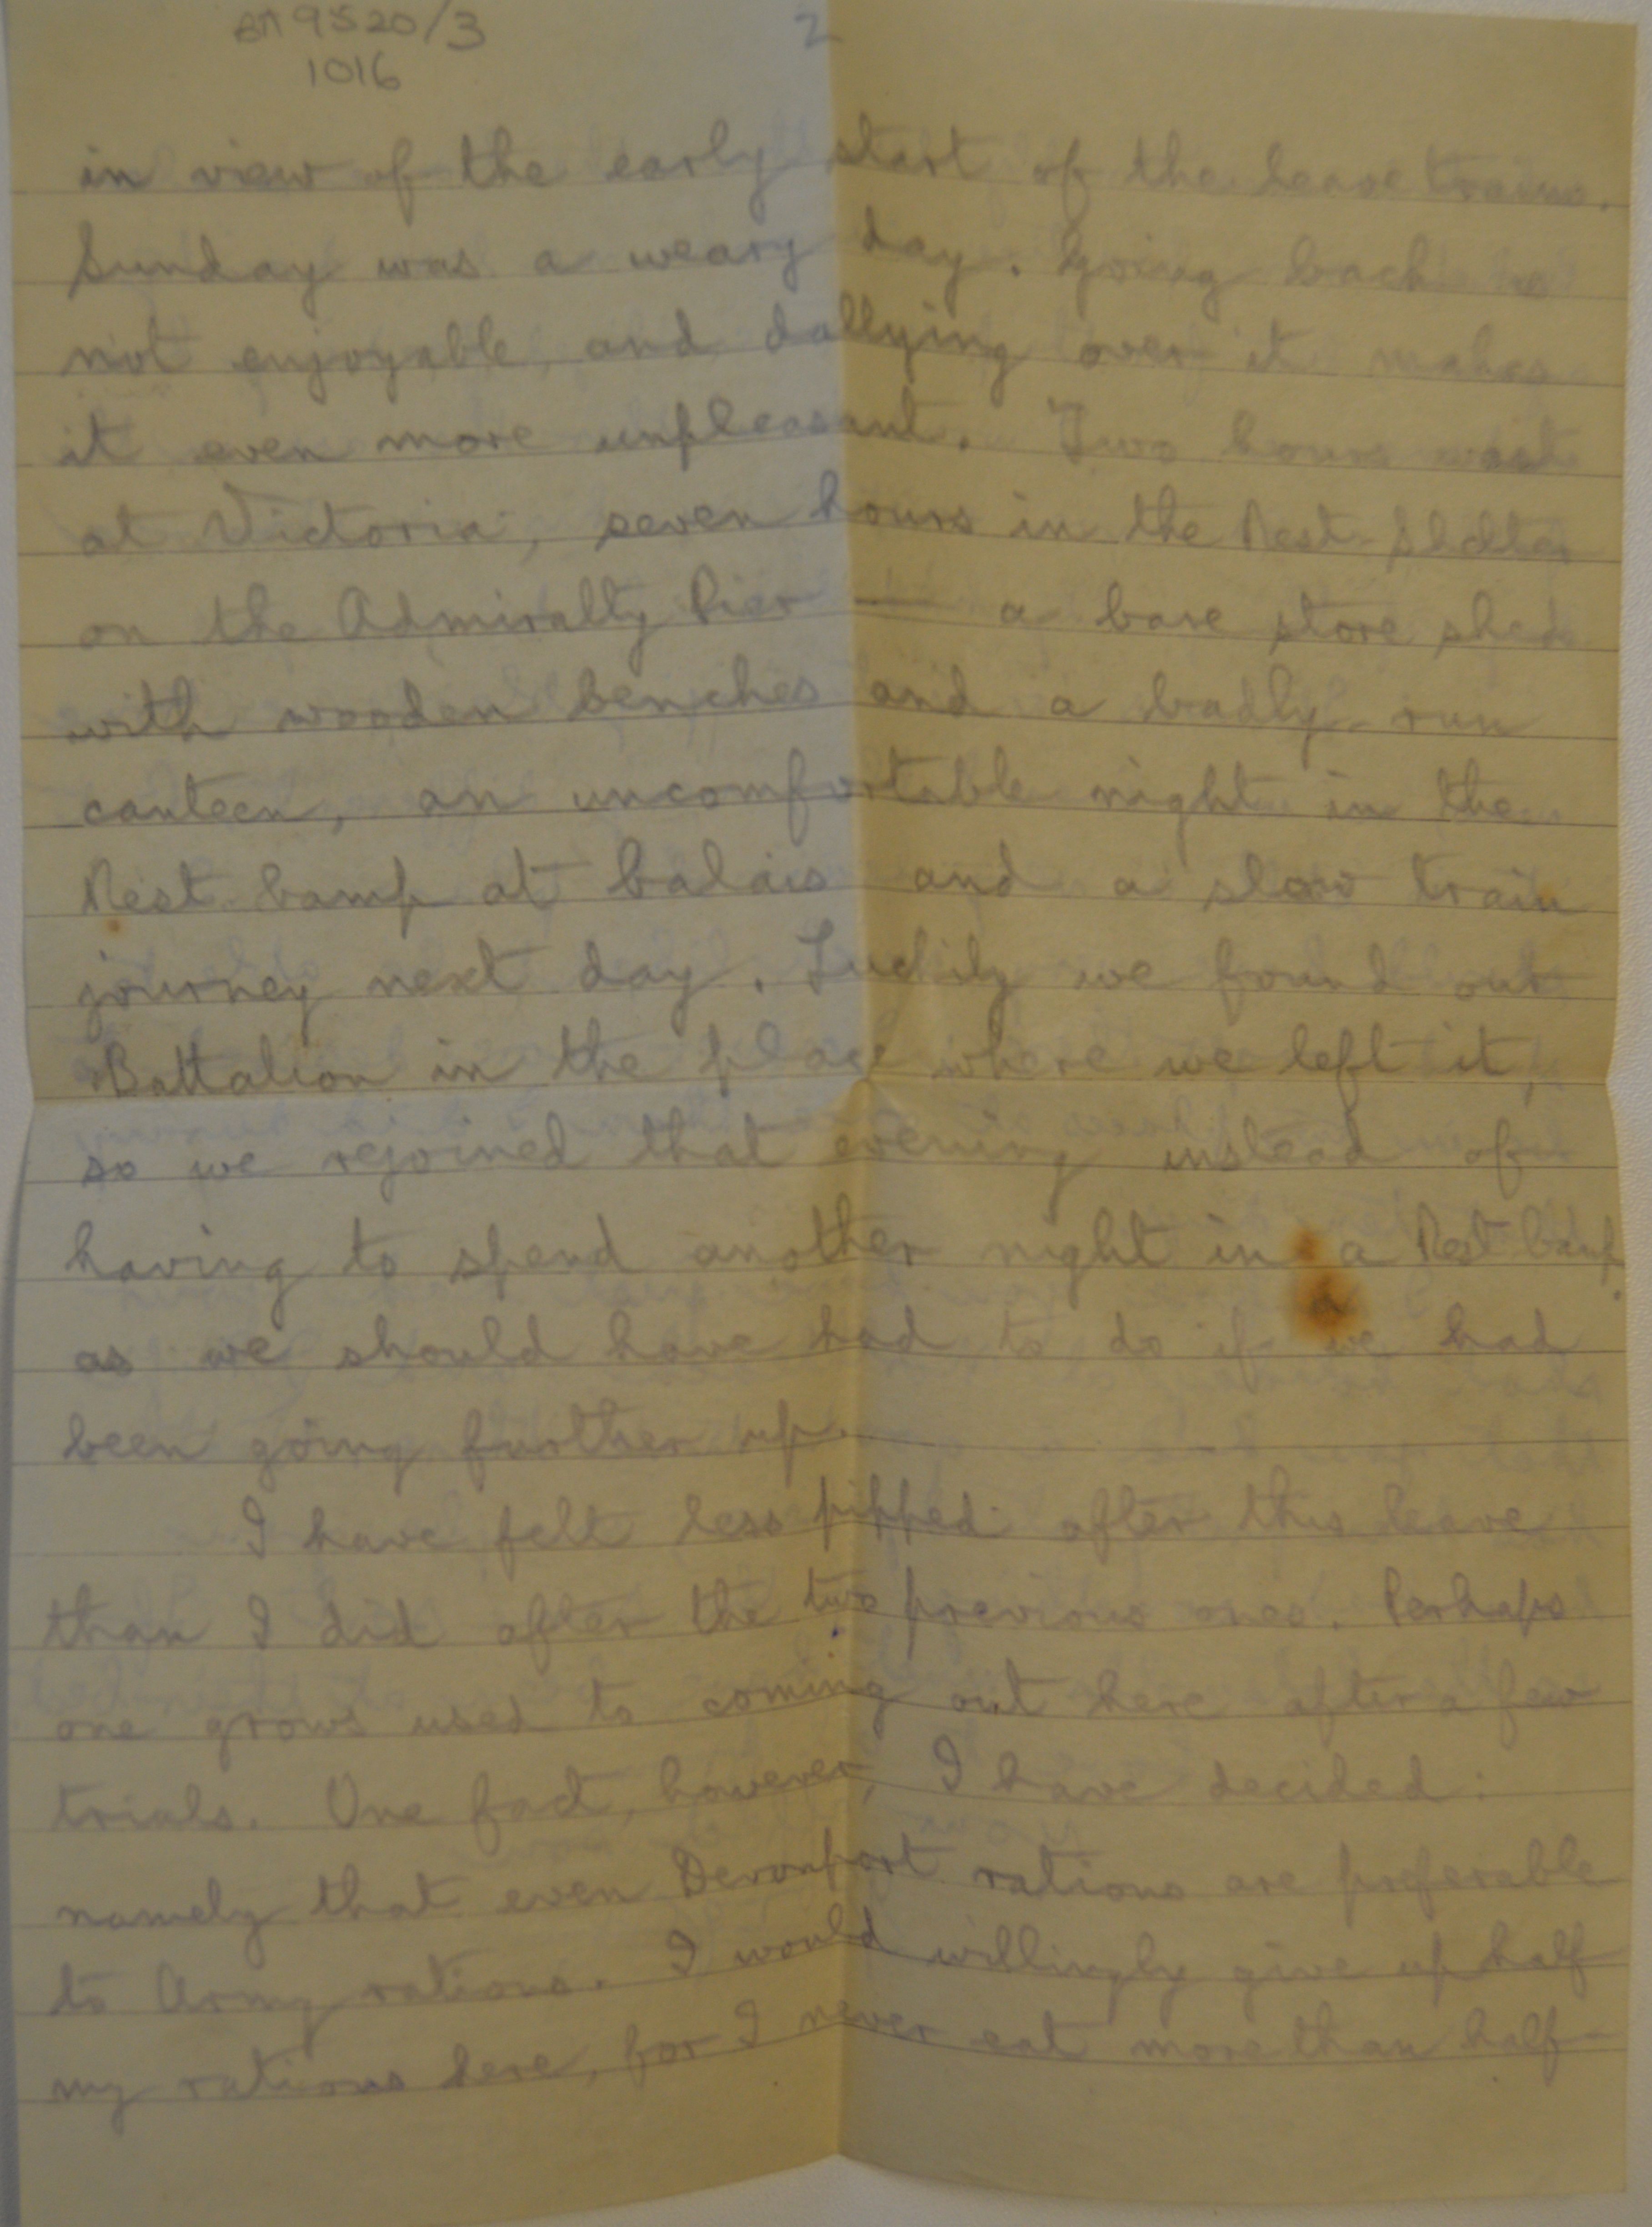 BM9520/3
1016
2
in view of the early start of the leave trains.
Sunday was a weary day. Going back is
not enjoyable, and dallying over it makes
it even more unpleasant. Two hours wait
at Victoria, seven hours in the Rest Shelter
on the Admiralty Pier — a bare store shed
with wooden benches and a badly-run
canteen, an uncomfortable night in the
Rest Camp at Calais and a slow train
journey next day. Luckily we found our
Battalion in the place where we left it,
so we rejoined that evening instead of
having to spend another night in a Rest Camp
as we should have had to do if we had
been going further up.
I have felt less pipped after this leave
than I did after the two previous ones. Perhaps
one grows used to coming out here after a few
trials. One fact, however, I have decided:
namely that even Devonport rations are preferable
to Army rations. I would willingly give up half
my rations here, for I never eat more than half-